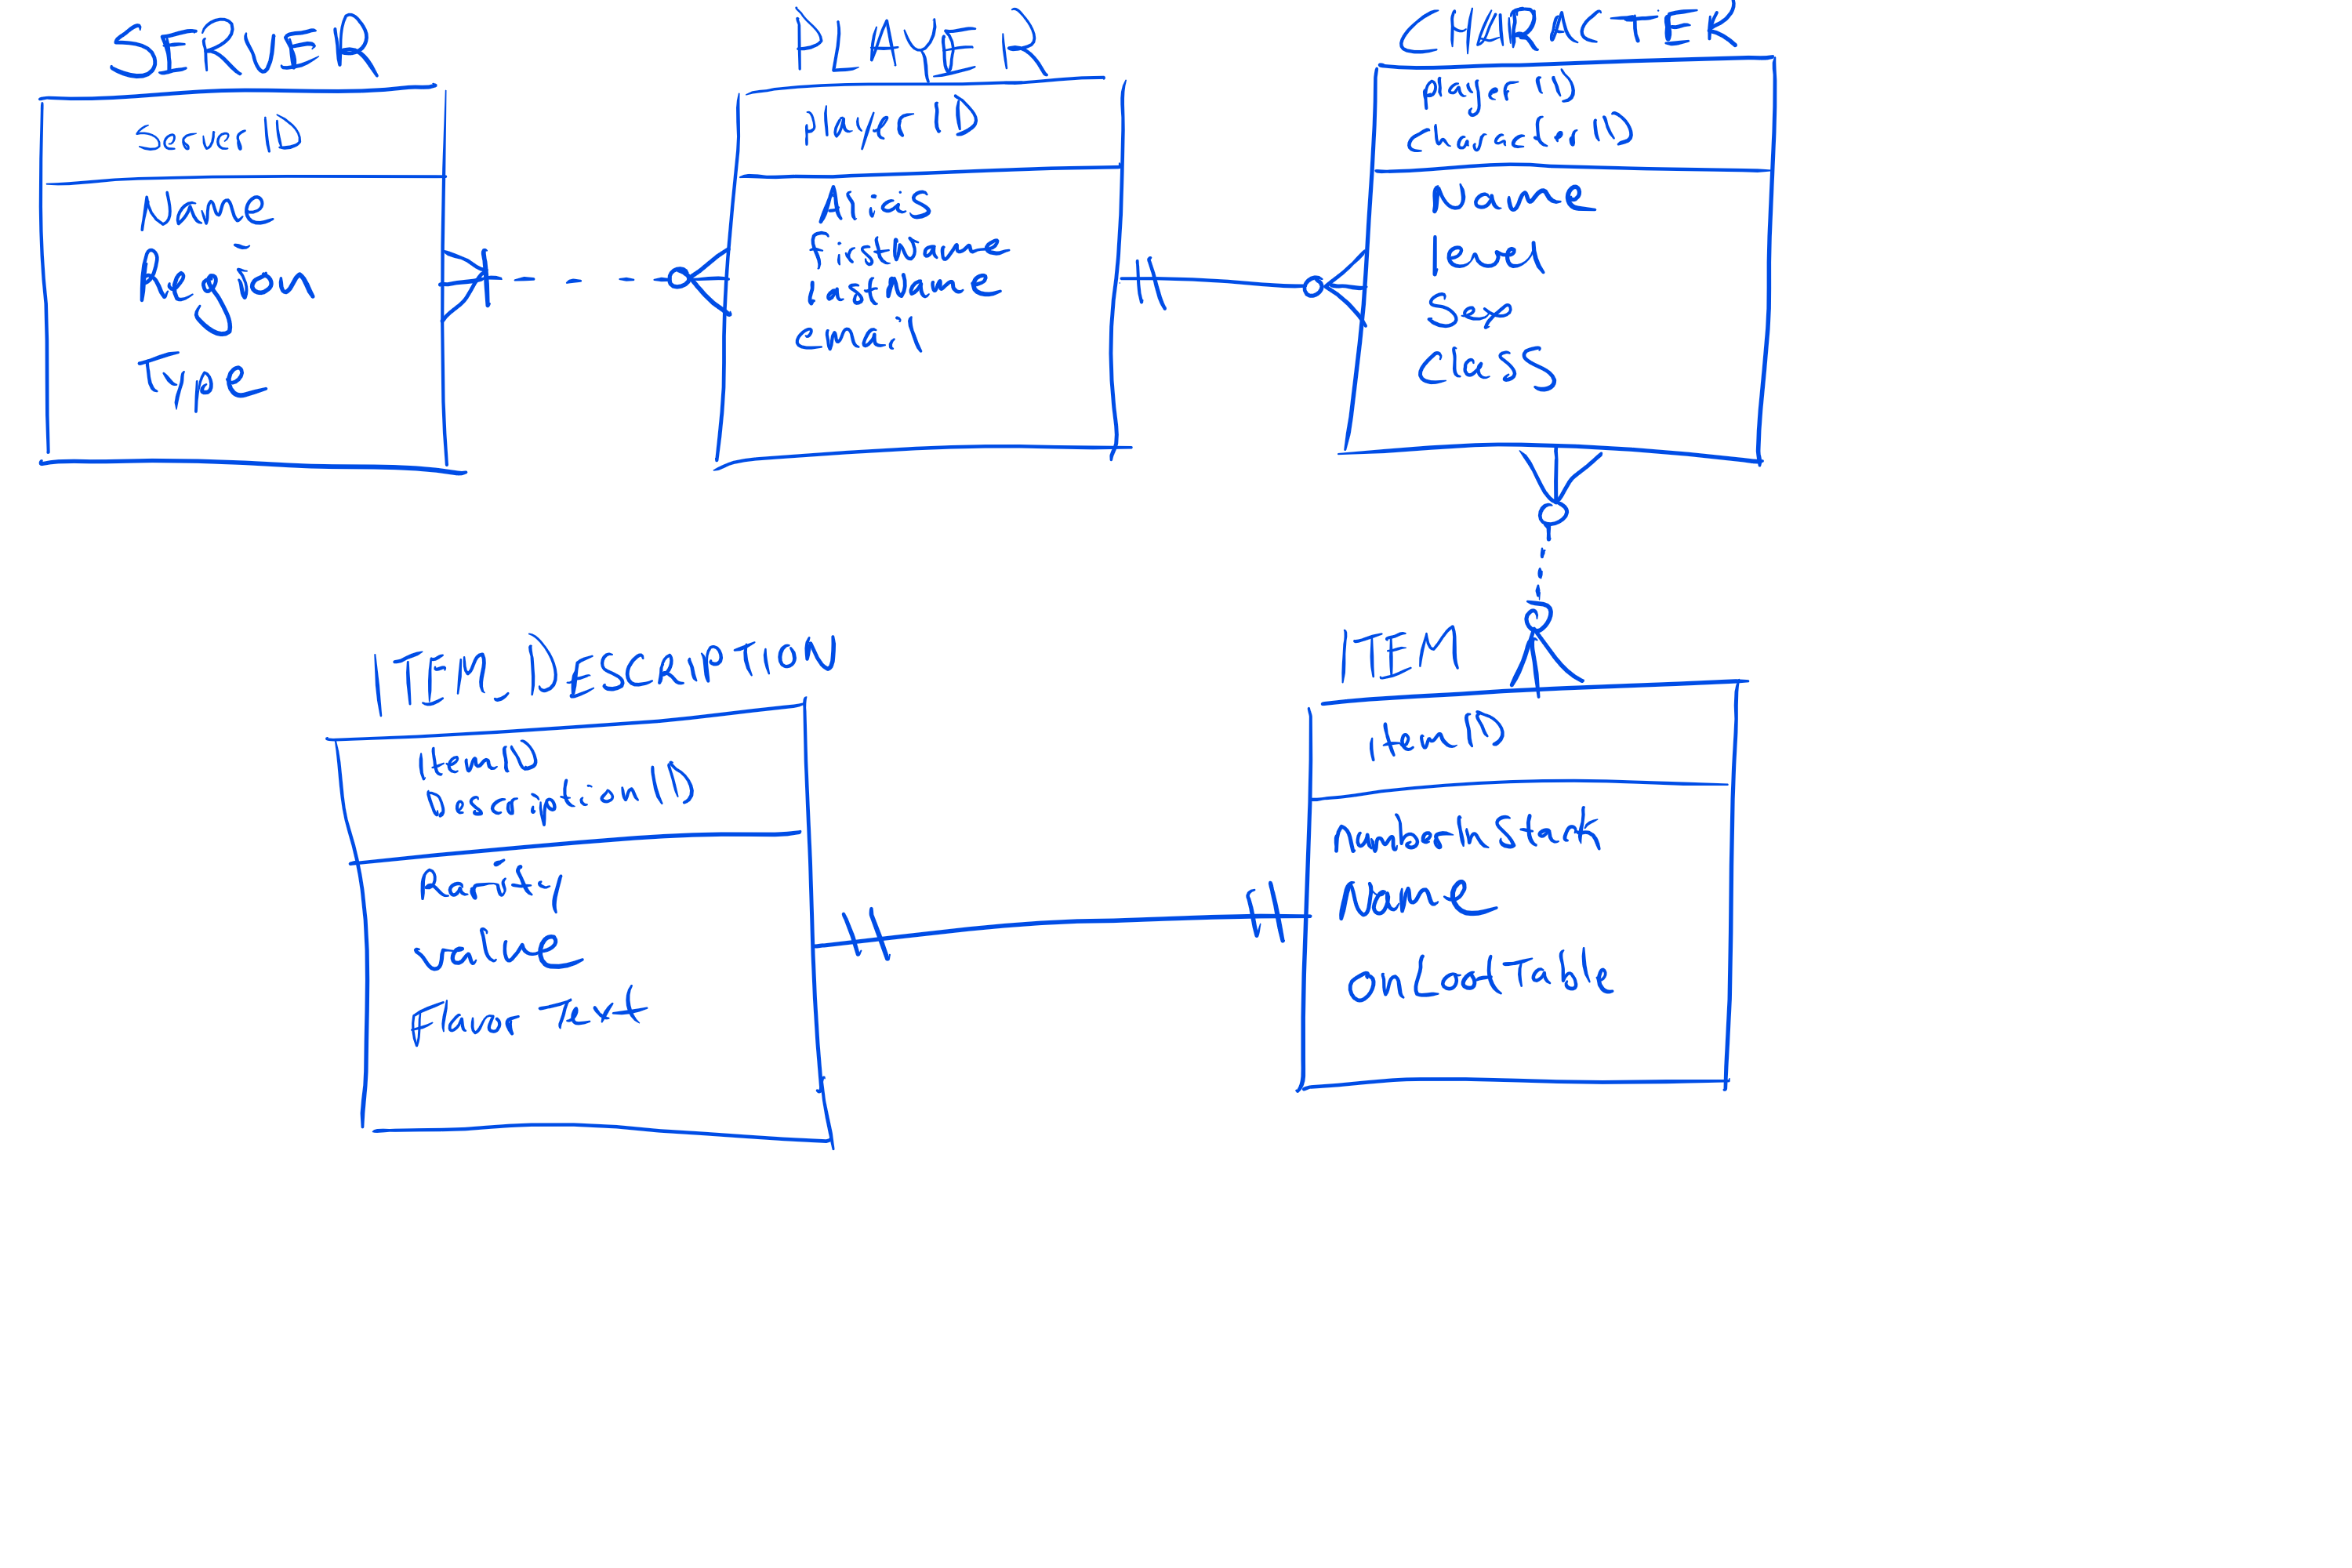 SERVER
serverID
Name
Region
Type
PLAYER
playerID
Alias
firstName
lastName
email
CHARACTER
playerID
characterID
Name
level
Sex
Class
ITEM_DESCRIPTION
ItemID
DescriptionID
Rarity
value
Flavor Text
ITEM
itemID
numberInStack
Name
onLootTable